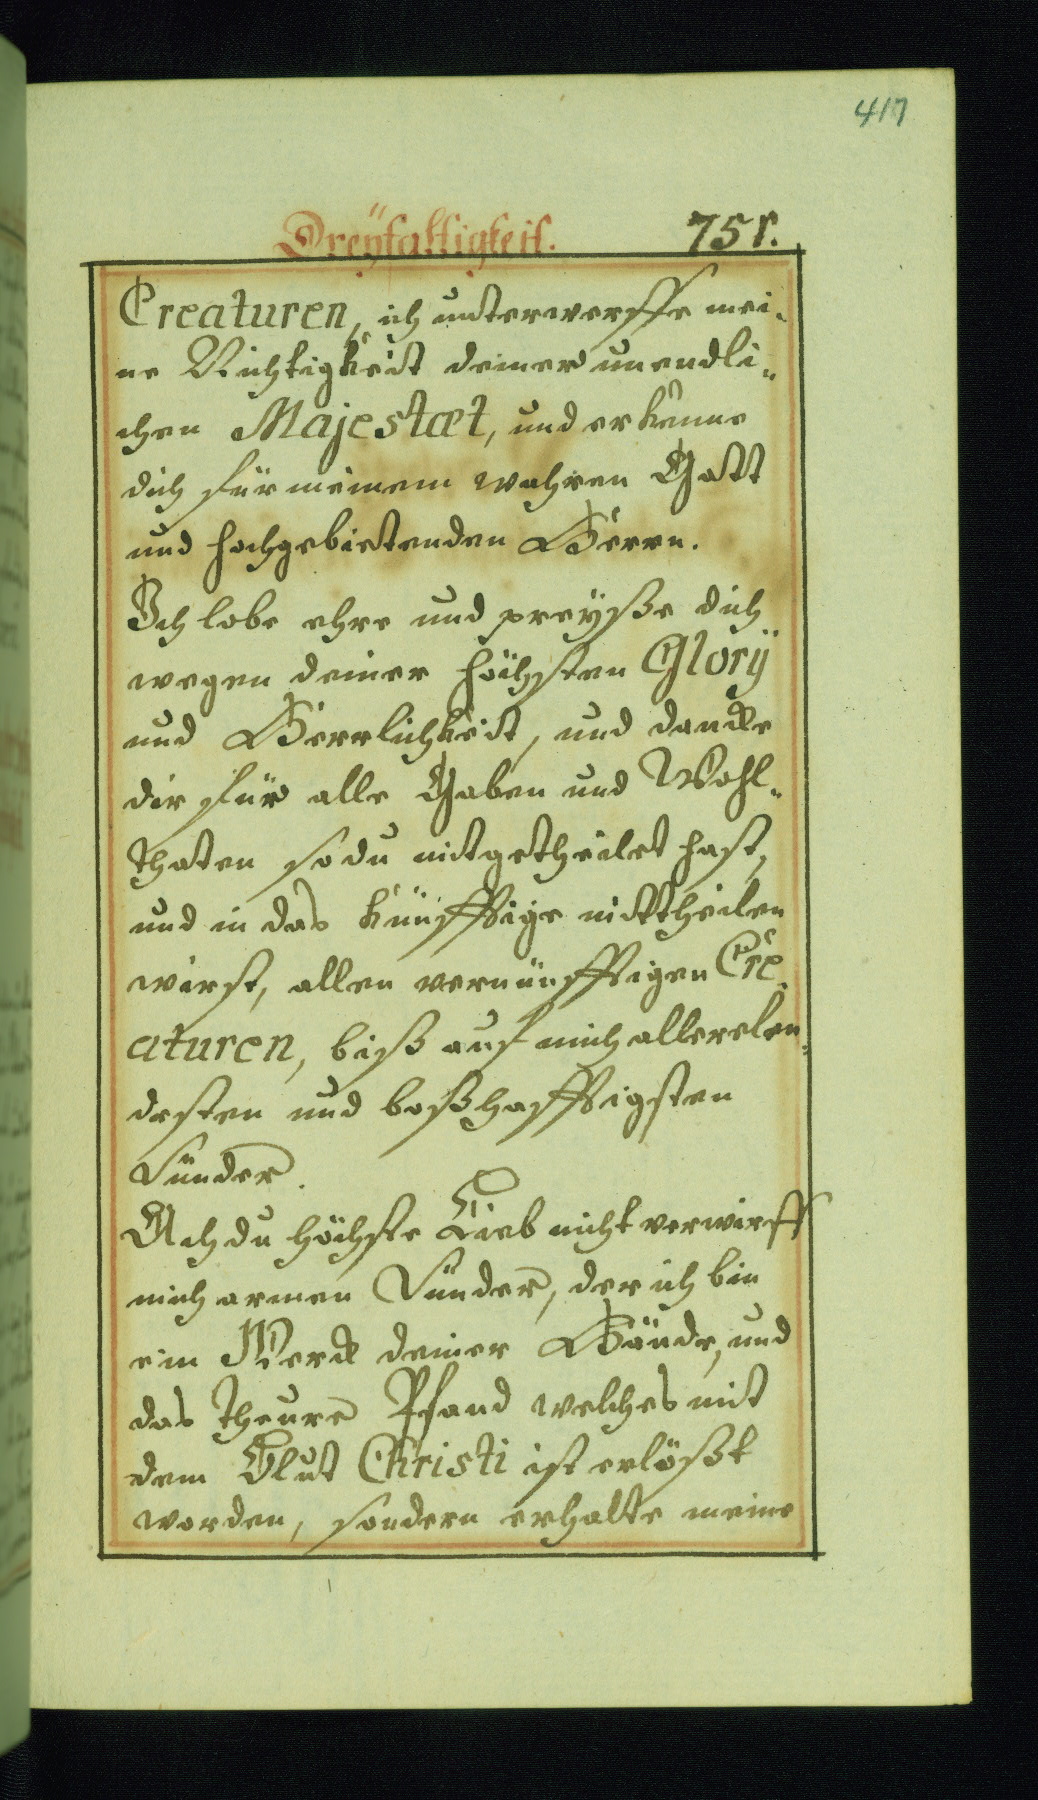 417
Dreÿfaltigkeit. 751.
Creaturen, ich unterwerffe mei„
ne Nichtigkeit deiner unendli„
chen Majestæt, und erkenne
dich für meinem wahren Gott
und hochgebietenden Herrn.
Ich lobe ehre und preÿße dich
wegen deiner höchsten Glorÿ
und Herrlichkeit, und dancke
dir für alle Gaben und Wohl„
thaten so du mitgetheilet hast,
und in das künfftige mittheilen
wirst, allen vernünfftigen Cre„
aturen, biß auf mich allerelen„
desten und boßhafftigsten
Sünder.
Ach du höchste Lieb nicht verwirff
mich armen Sünder, der ich bin
ein Werck deiner Hände, und
das theure Pfand welches mit
dem Blut Christi ist erlößt
worden, sondern erhalte meine